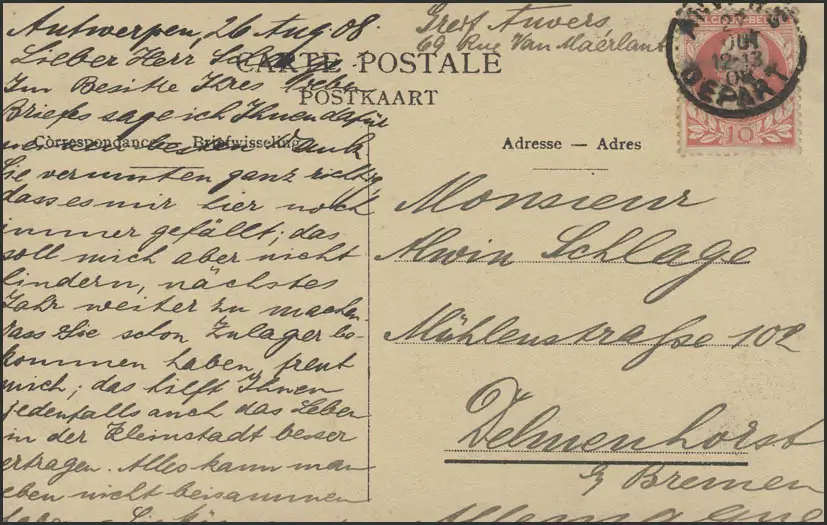 Antwerpen, 26 Aug 08.
Lieber Herr
Im Besitze Ihres lieben
Briefes sage ich Ihnen dafür
meinen besten Dank
Sie vermuten ganz richtig,
dass es mir hier noch
immer gefällt; das
soll mich aber nicht
hindern, nächstes
Jahr weiter zu machen.
Dass Sie schon Zulager be-
kommen haben, freut
mich; das hilft Ihnen
jedenfalls auch das Leben
in der Kleinstadt besser
ertragen. Alles kann man
eben nicht beisammen
haben.
Greif Anvers
69 Rue Van Maérlant
CARTE POSTALE
POSTKAART
Correspondance Briefwisseling
Adresse — Adres
Monsieur
Alwin Schlage
Mühlenstraße 102
Delmenhorst
b/ Bremen
Allemagne
12-13
08
DEPART
10